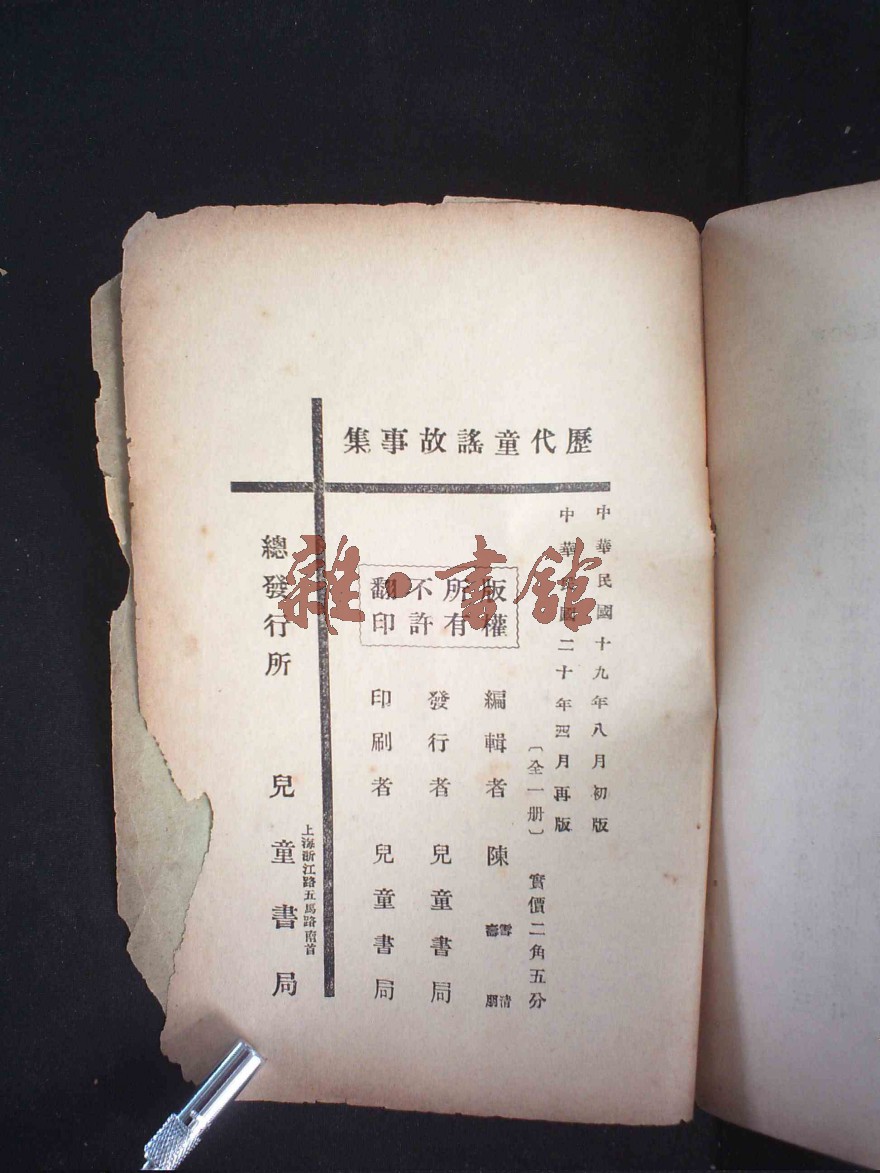 歷代童謠故事集
中華民國十九年八月初版
中華民國二十年四月再版
〔全一册〕 實價二角五分
版權所有不許翻印
編輯者 陳雪清 壽朋
發行者 兒童書局
印刷者 兒童書局
上海浙江路五馬路南首
總發行所 兒童書局
雜·書館